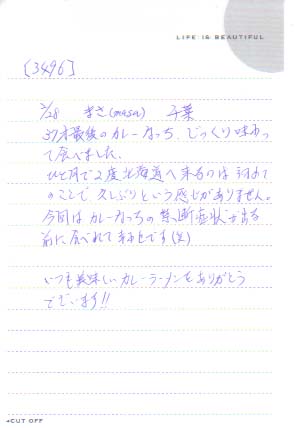 LIFE IS BEAUTIFUL
[3496]
2/28 まさ(masa) 千葉
37才最後のカレーなっち、じっくり味わっ
て食べました。
ひと月で2度北海道へ来るのは初めて
のことで、久しぶりという感じがありません。
今回はカレーなっちの禁断症状が出る
前に食べれて幸せです(笑)
いつも美味しいカレーラーメンをありがとう
でざいます!!
CUT OFF